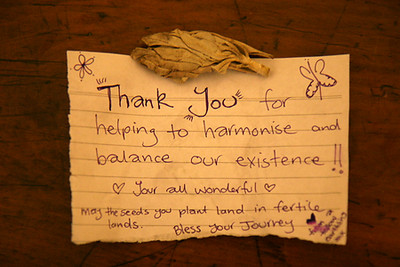 Thank You for
helping to harmonise and
balance our existence!!
♡ Your all wonderful ♡
May the seeds you plant land in fertile
lands. Bless Your Journey